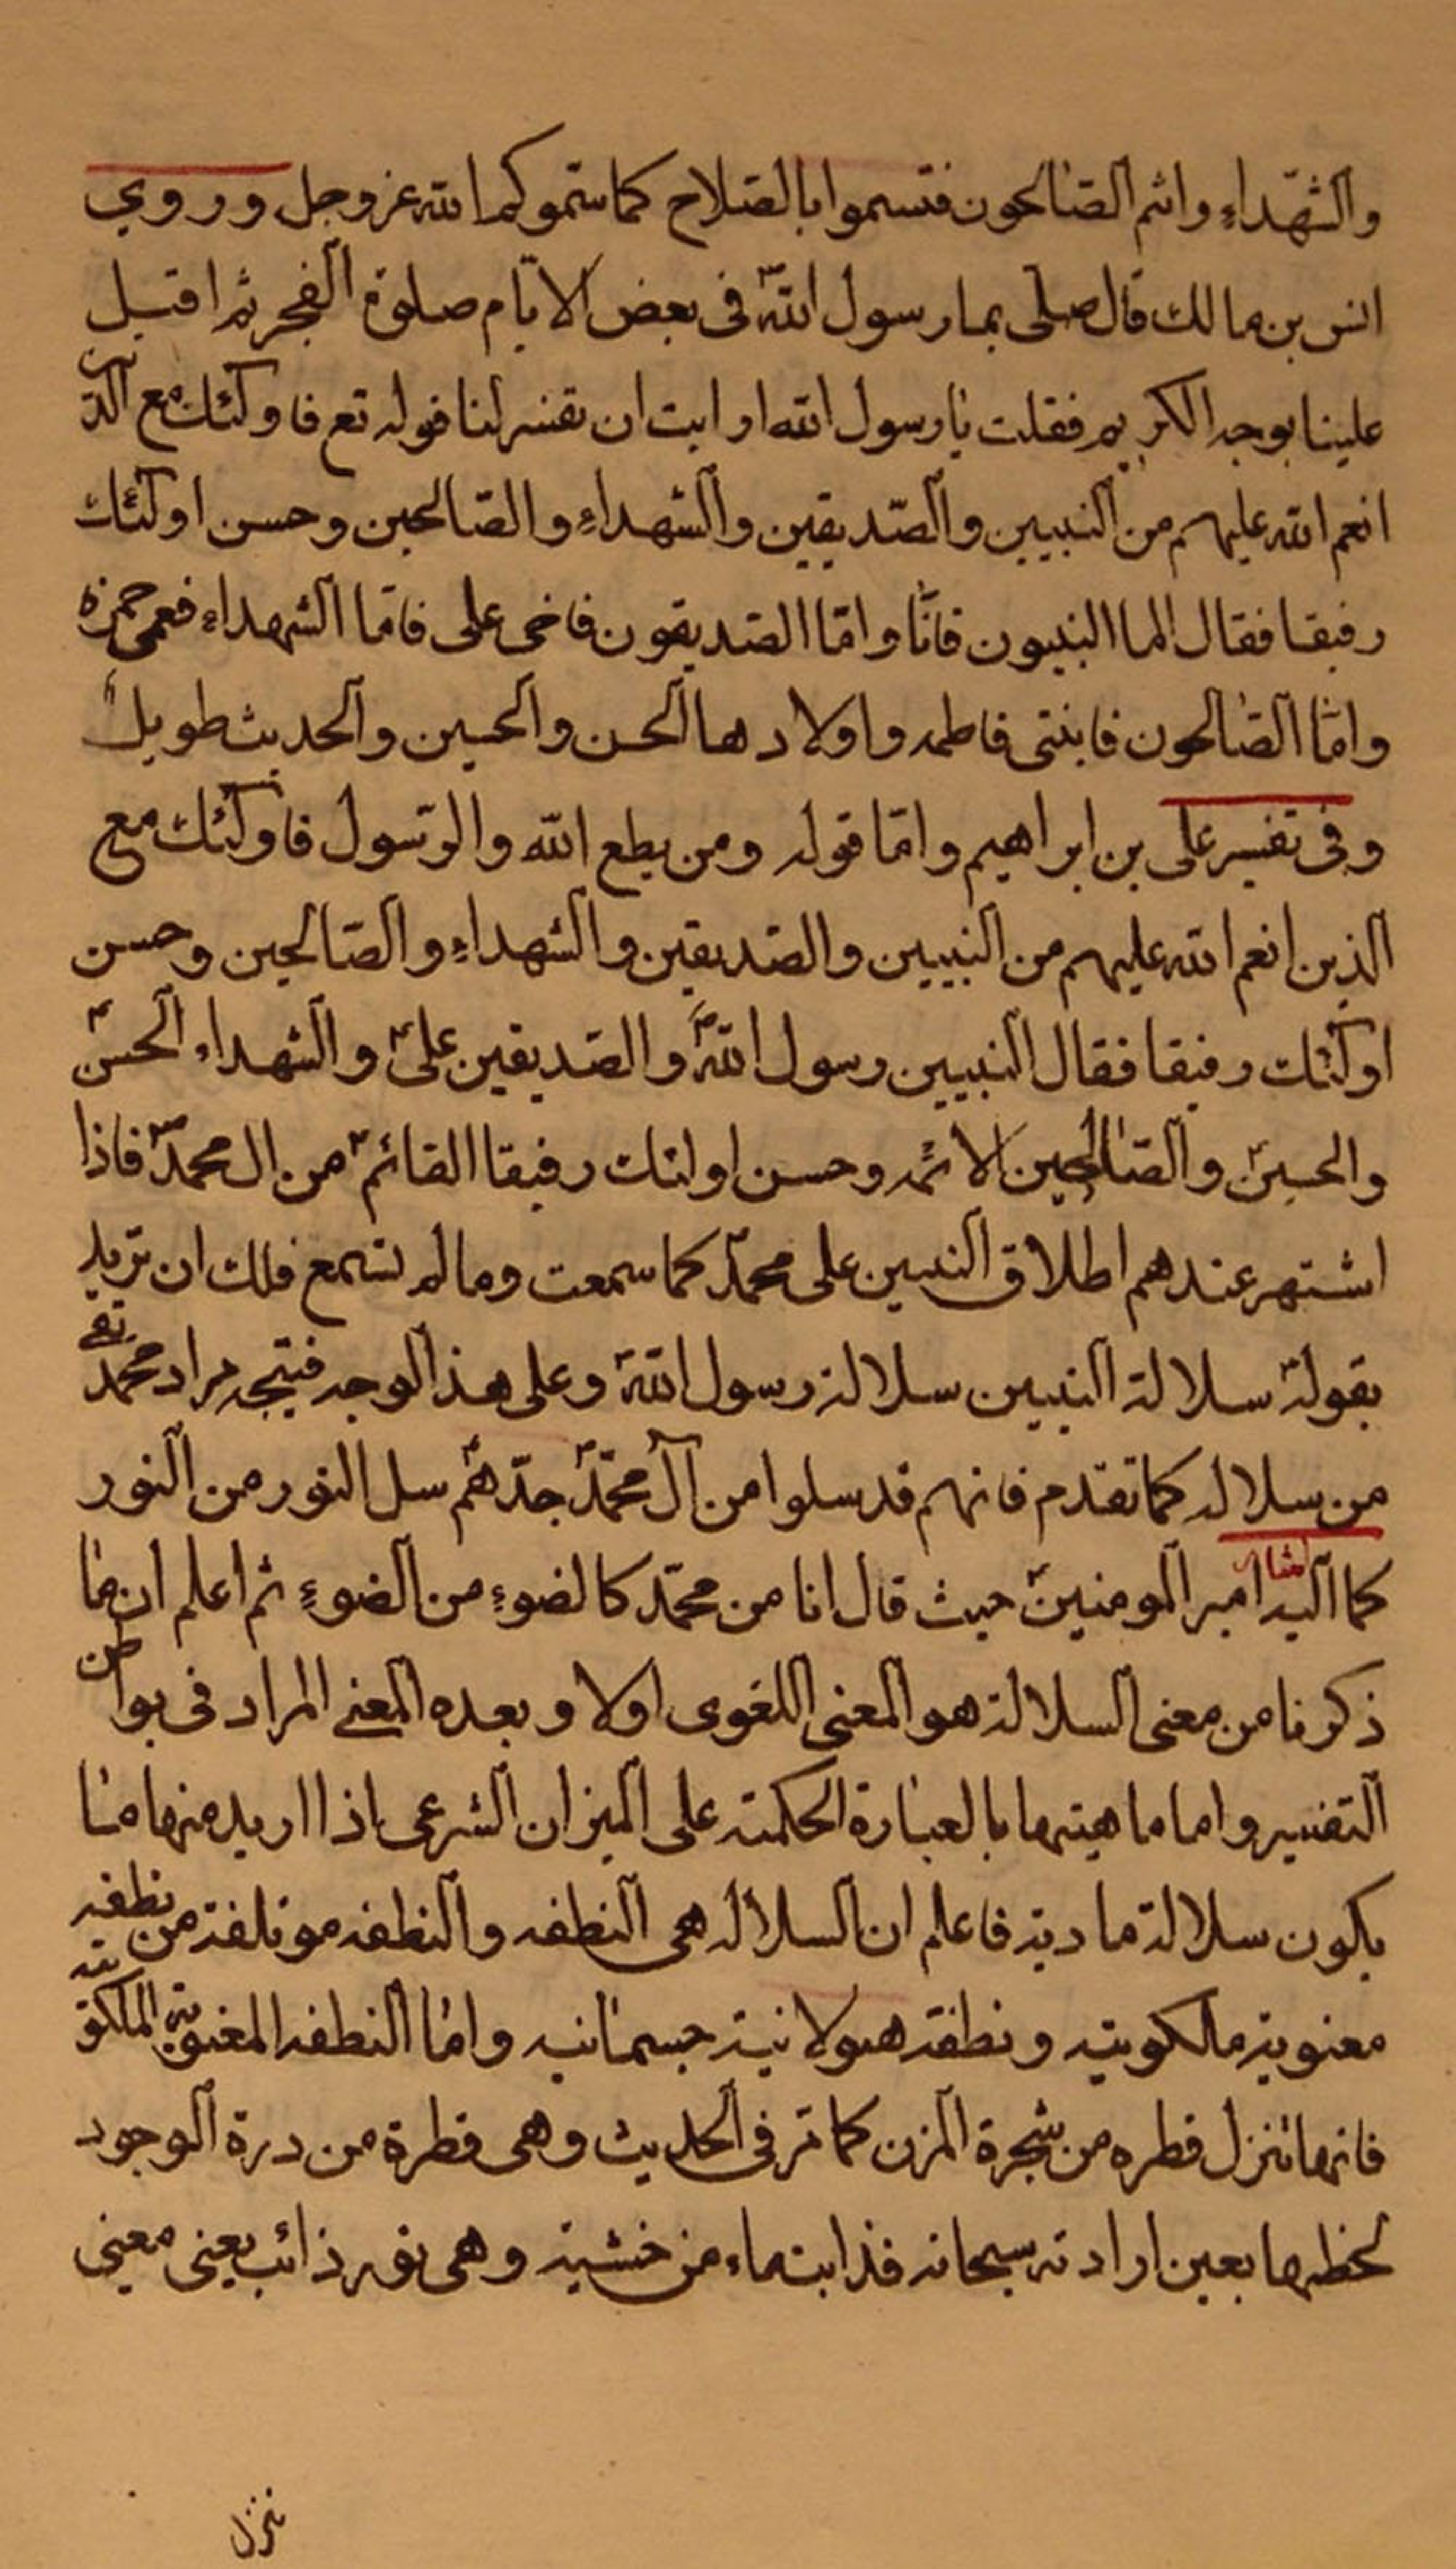 والشهداء وانتم الصالحون فتسموا بالصلاح كما سموكم الله عز وجل وروي
انس بن مالك قال صلى بنا رسول الله ص في بعض الايام صلوة الفجر ثم اقبل
علينا بوجه الكريم فقلت يا رسول الله ارايت ان تفسر لنا قوله تع فاولئك مع الذين
انعم الله عليهم من النبيين والصديقين والشهداء والصالحين وحسن اولئك
رفيقا فقال اما النبيون فانا واما الصديقون فاخى على فاما الشهداء فعمى حمزه
واما الصالحون فابنتى فاطمه واولادها الحسن والحسين والحديث طويل
وفى تفسير على بن ابراهيم واما قوله ومن يطع الله والرسول فاولئك مع
الذين انعم الله عليهم من النبيين والصديقين والشهداء والصالحين وحسن
اولئك رفيقا فقال النبيين رسول الله ص والصديقين على ع والشهداء الحسن ع
والحسين ع والصالحين الائمه وحسن اولئك رفيقا القائم ع من ال محمد ص فاذا
اشتهر عندهم اطلاق النبيين على محمد كما سمعت وما لم تسمع فلك ان تريد
بقوله ع سلالة النبيين سلالة رسول الله ص وعلى هذا الوجه فيتجه مراد محمد تقى
من سلاله كما تقدم فانهم قد سلوا من آل محمد ص جدهم سل النور من النور
كما اشار اليه امير المومنين ع حيث قال انا من محمد كالضوء من الضوء ثم اعلم ان ما
ذكرنا من معنى السلالة هو المعنى اللغوى اولا وبعده المعنى المراد فى بواطن
التفسير واما ماهيتها بالعبارة الحكمته على الميزان الشرعى اذا اريد منها ما
يكون سلالة مادية فاعلم ان السلاله هى النطفه والنطفه موتلفة من نطفه
معنوية مالكوتيه ونطفة هيولانية جسمانيه واما النطفه المعنوية الملكوتيه
فانها تنزل قطره من شجرة المزن كما مر فى الحديث وهى قطرة من درة الوجود
لحظها بعين ارادته سبحانه فذابت ماء من خشيته وهى نور ذائب يعنى معنى
تنزل